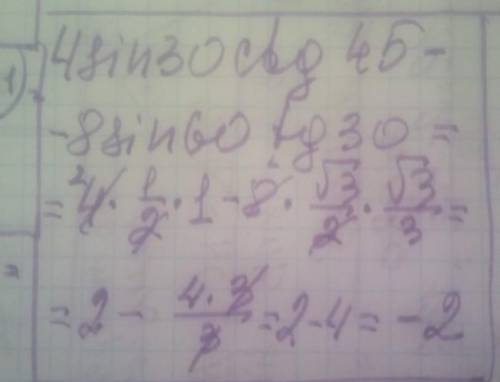 1)
4sin30 ctg 45 -
-8sin60 tg30 =
= 4 · 1/2 · 1 - 8 · √3/2 · √3/3 =
= 2 - 4·3/3 = 2-4 = -2